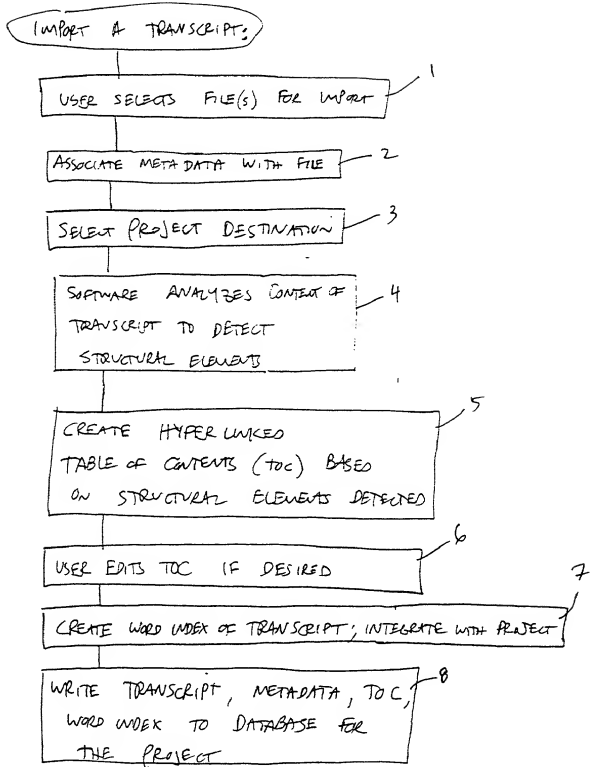 IMPORT A TRANSCRIPT:
1
USER SELECTS FILE(S) FOR IMPORT
ASSOCIATE META DATA WITH FILE
2
SELECT PROJECT DESTINATION
3
SOFTWARE ANALYZES CONTENT OF
4
TRANSCRIPT TO DETECT
STRUCTURAL ELEMENTS
5
CREATE HYPERLINKED
TABLE OF CONTENTS (TOC) BASED
ON STRUCTURAL ELEMENTS DETECTED
6
USER EDITS TOC IF DESIRED
7
CREATE WORD INDEX OF TRANSCRIPT; INTEGRATE WITH PROJECT
8
WRITE TRANSCRIPT, METADATA, TOC,
WORD INDEX TO DATABASE FOR
THE PROJECT